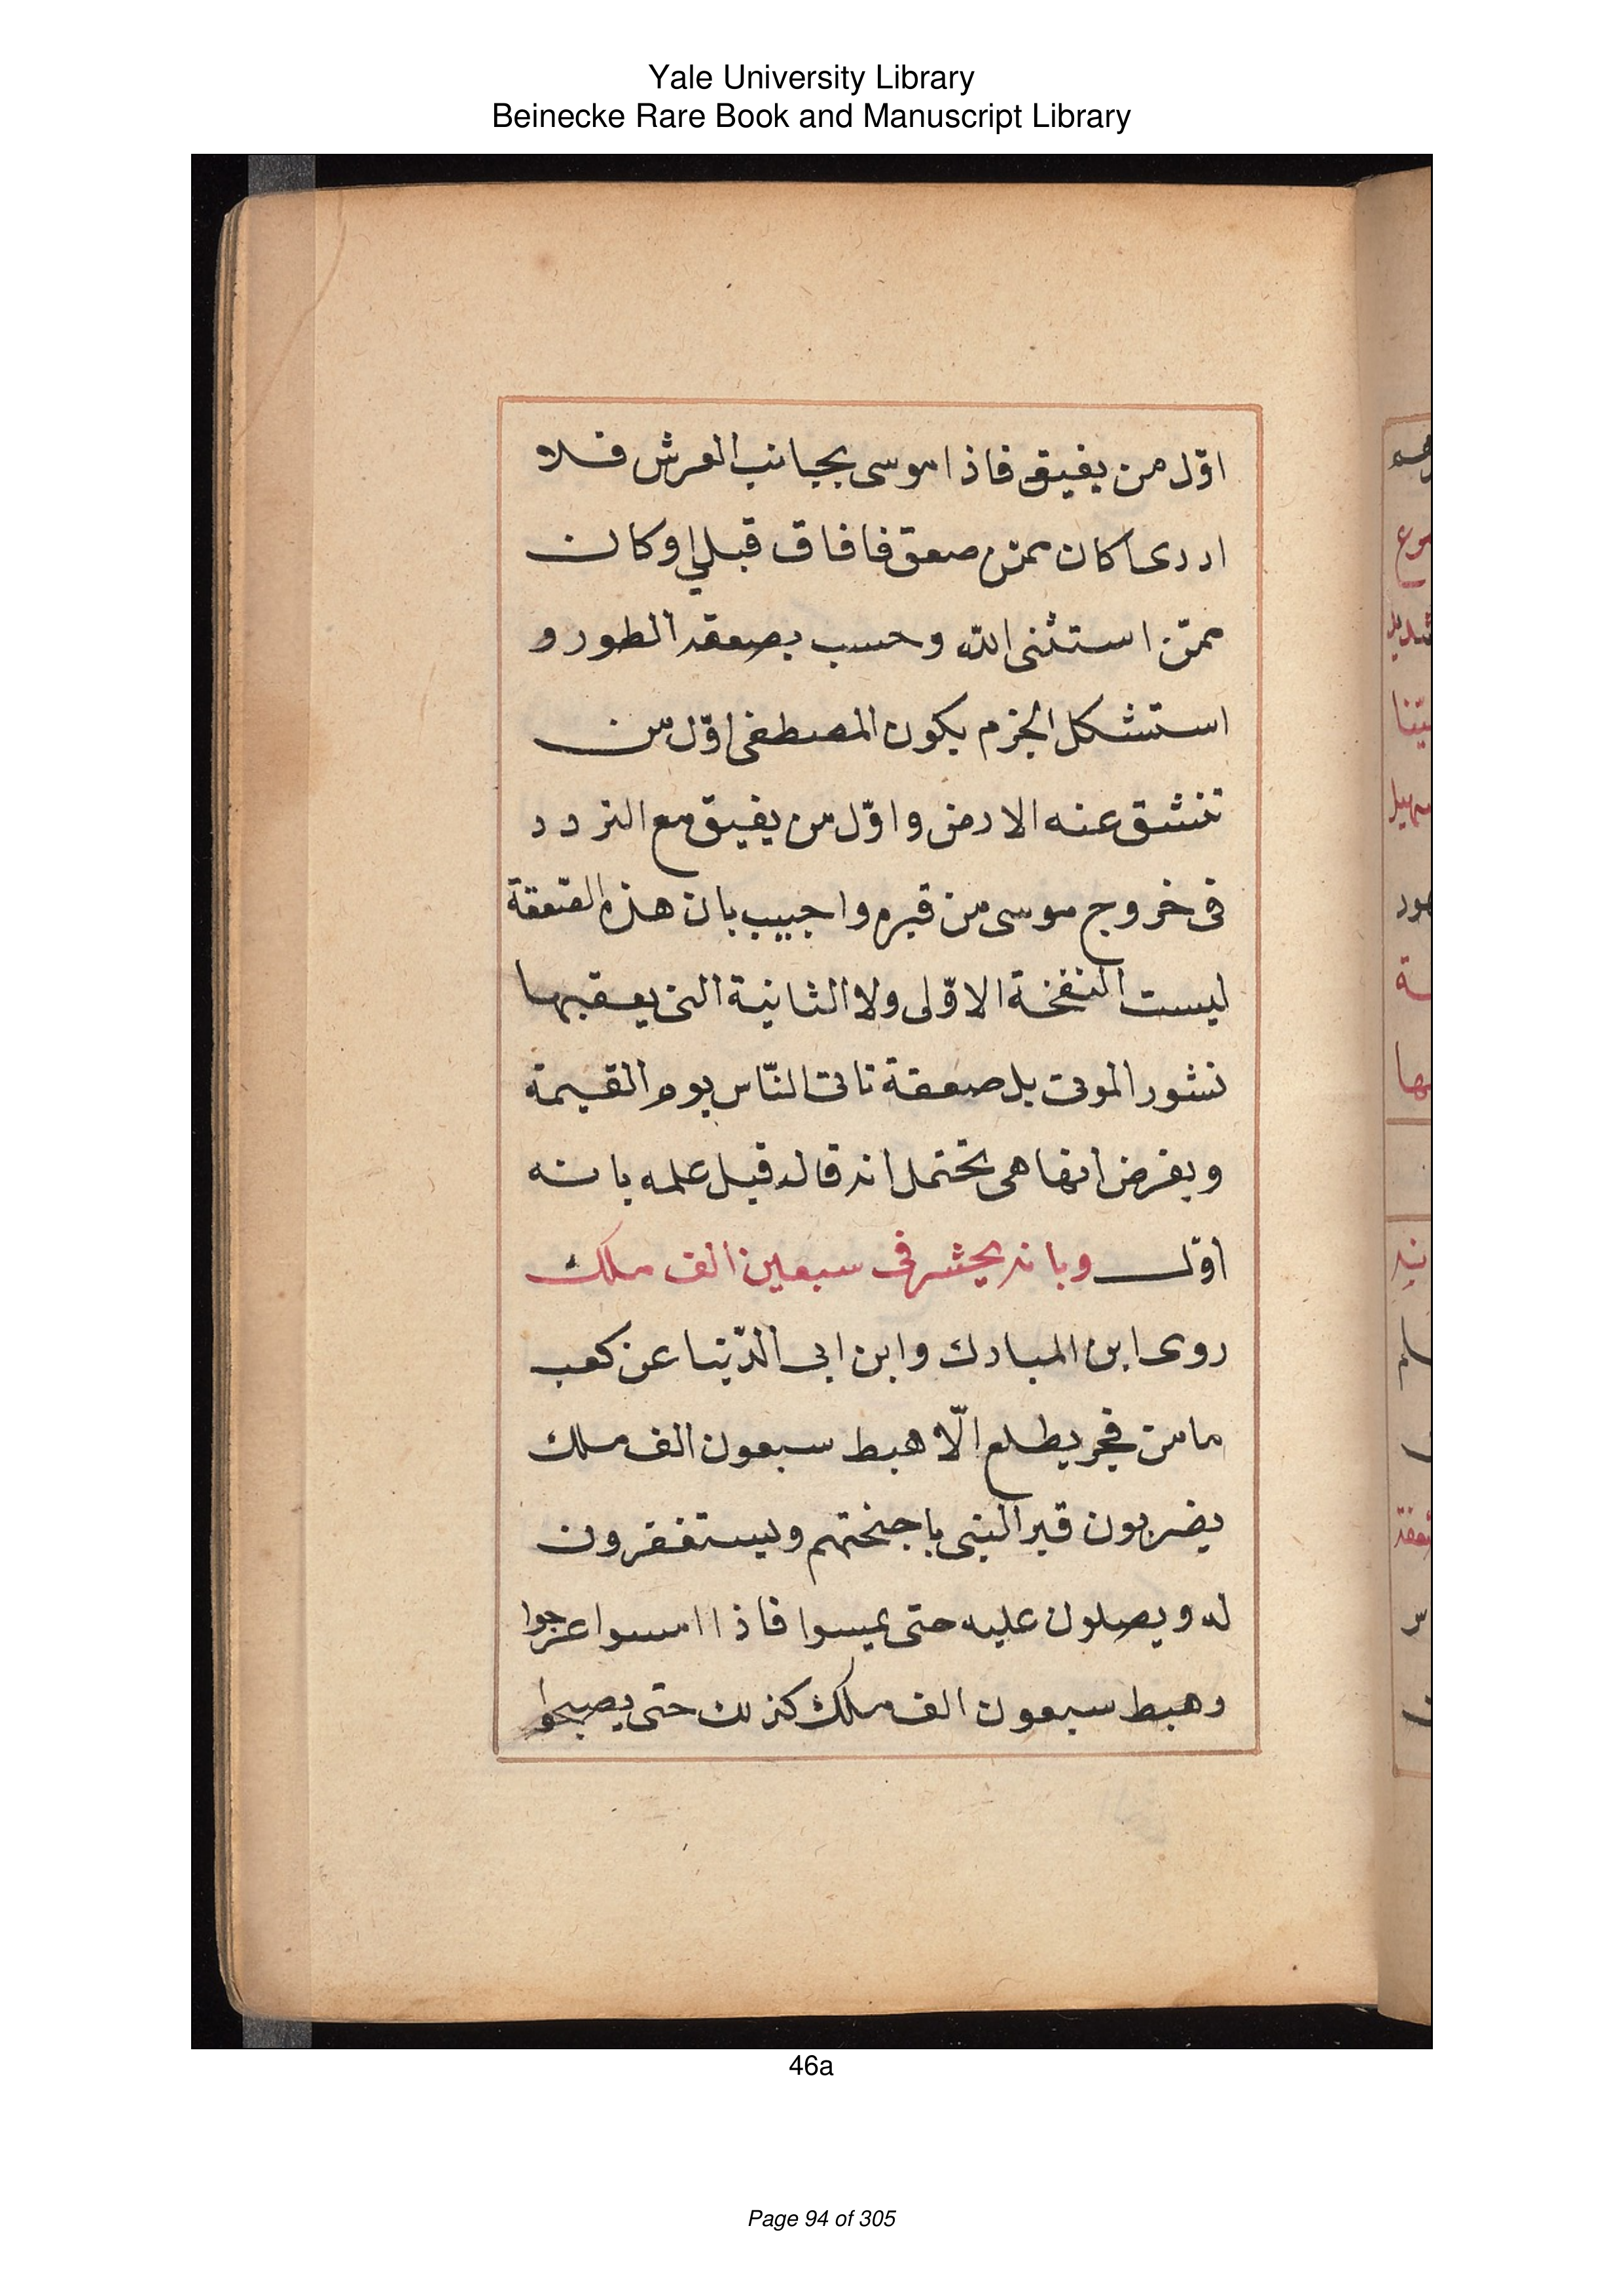 Yale University Library
Beinecke Rare Book and Manuscript Library
اوّل من يفيق فاذا موسى بجانب العرش فلا
ادرى اكان ممّن صعق فافاق قبلى او كان
ممّن استثنى الله وحسب بصعقه الطور و
استشكل الجزم بكون المصطفى اوّل من
تنشق عنه الارض واوّل من يفيق مع التردد
فى خروج موسى من قبره واجيب بان هذه الصّعقة
ليست النفخة الاوّلى ولا الثانية التى يعقبها
نشور الموتى بل صعقة تاتى النّاس يوم القيمة
وبفرض انها هى يحتمل انه قاله قبل علمه بانه
اوّل وبانه يحشر فى سبعين الف ملك
روى ابن المبارك وابن ابى الدّنيا عن كعب
ما من فجر يطلع الّا هبط سبعون الف ملك
يضربون قبر النبى باجنحتهم ويستغفرون
له ويصلون عليه حتى يمسوا فاذا امسوا عرجوا
وهبط سبعون الف ملك كذلك حتى يصبحوا
46a
Page 94 of 305